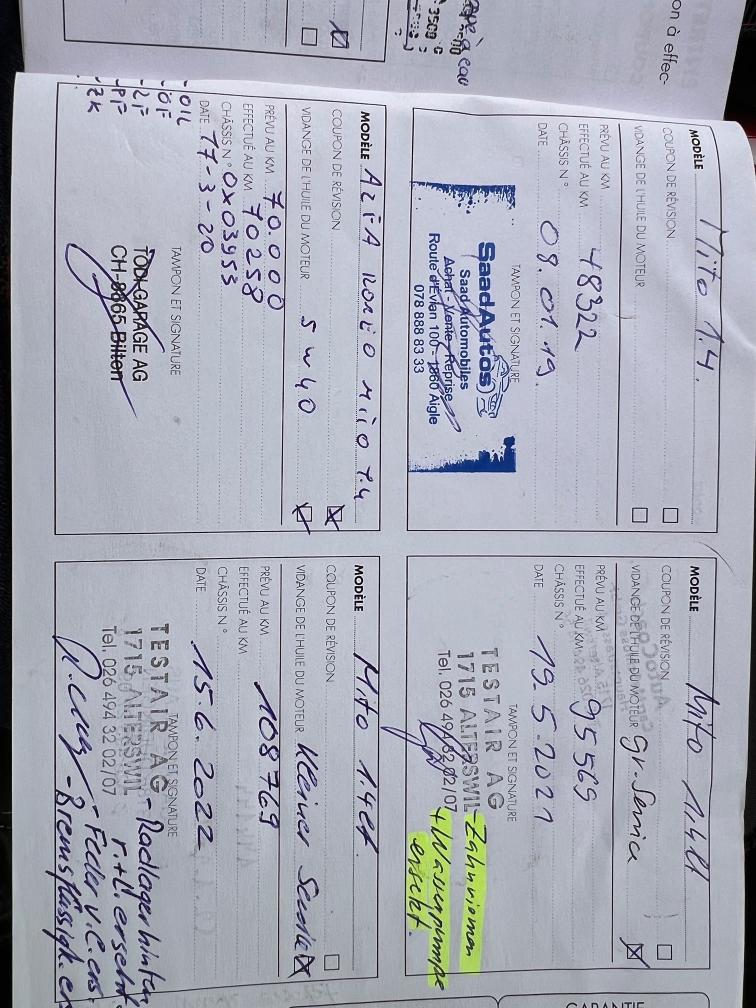 MODÈLE Mito 1.4.
COUPON DE RÉVISION
VIDANGE DE L'HUILE DU MOTEUR
PRÉVU AU KM
EFFECTUÉ AU KM 48322
CHÂSSIS N°
DATE 08.01.19.
TAMPON ET SIGNATURE
SaadAutos
Saad Automobiles
Achat - Vente - Reprise
Route d'Evian 100 - 1860 Aigle
078 888 83 33
MODÈLE Mito 1.4lt
COUPON DE RÉVISION
VIDANGE DE L'HUILE DU MOTEUR gr. Service
PRÉVU AU KM
EFFECTUÉ AU KM 95569
CHÂSSIS N°
DATE 19.5.2021
TAMPON ET SIGNATURE
TESTAIR AG
1715 ALTERSWIL
Tel. 026 494 32 02/07
-Zahnriemen
+ Wasserpumpe
ersetzt.
MODÈLE ALFA ROMEO MITO 1.4
COUPON DE RÉVISION
VIDANGE DE L'HUILE DU MOTEUR 5W40
PRÉVU AU KM 70.000
EFFECTUÉ AU KM 70258
CHÂSSIS N° 0X03953
DATE 17-3-20
- OIL
- ÖF
- LF
- PF
- ZK
TAMPON ET SIGNATURE
TODI GARAGE AG
CH-8865 Bilten
MODÈLE Mito 1.4lt.
COUPON DE RÉVISION
VIDANGE DE L'HUILE DU MOTEUR Kleiner Service
PRÉVU AU KM
EFFECTUÉ AU KM 108769
CHÂSSIS N°
DATE 15.6.2022
TAMPON ET SIGNATURE
TESTAIR AG
1715 ALTERSWIL
Tel. 026 494 32 02/07
- Radlager hinten
r.+l. ersetzt
- Feder v.l. ers.
- Bremsflüssigk. er
on à effec-
3500
GARANTIE